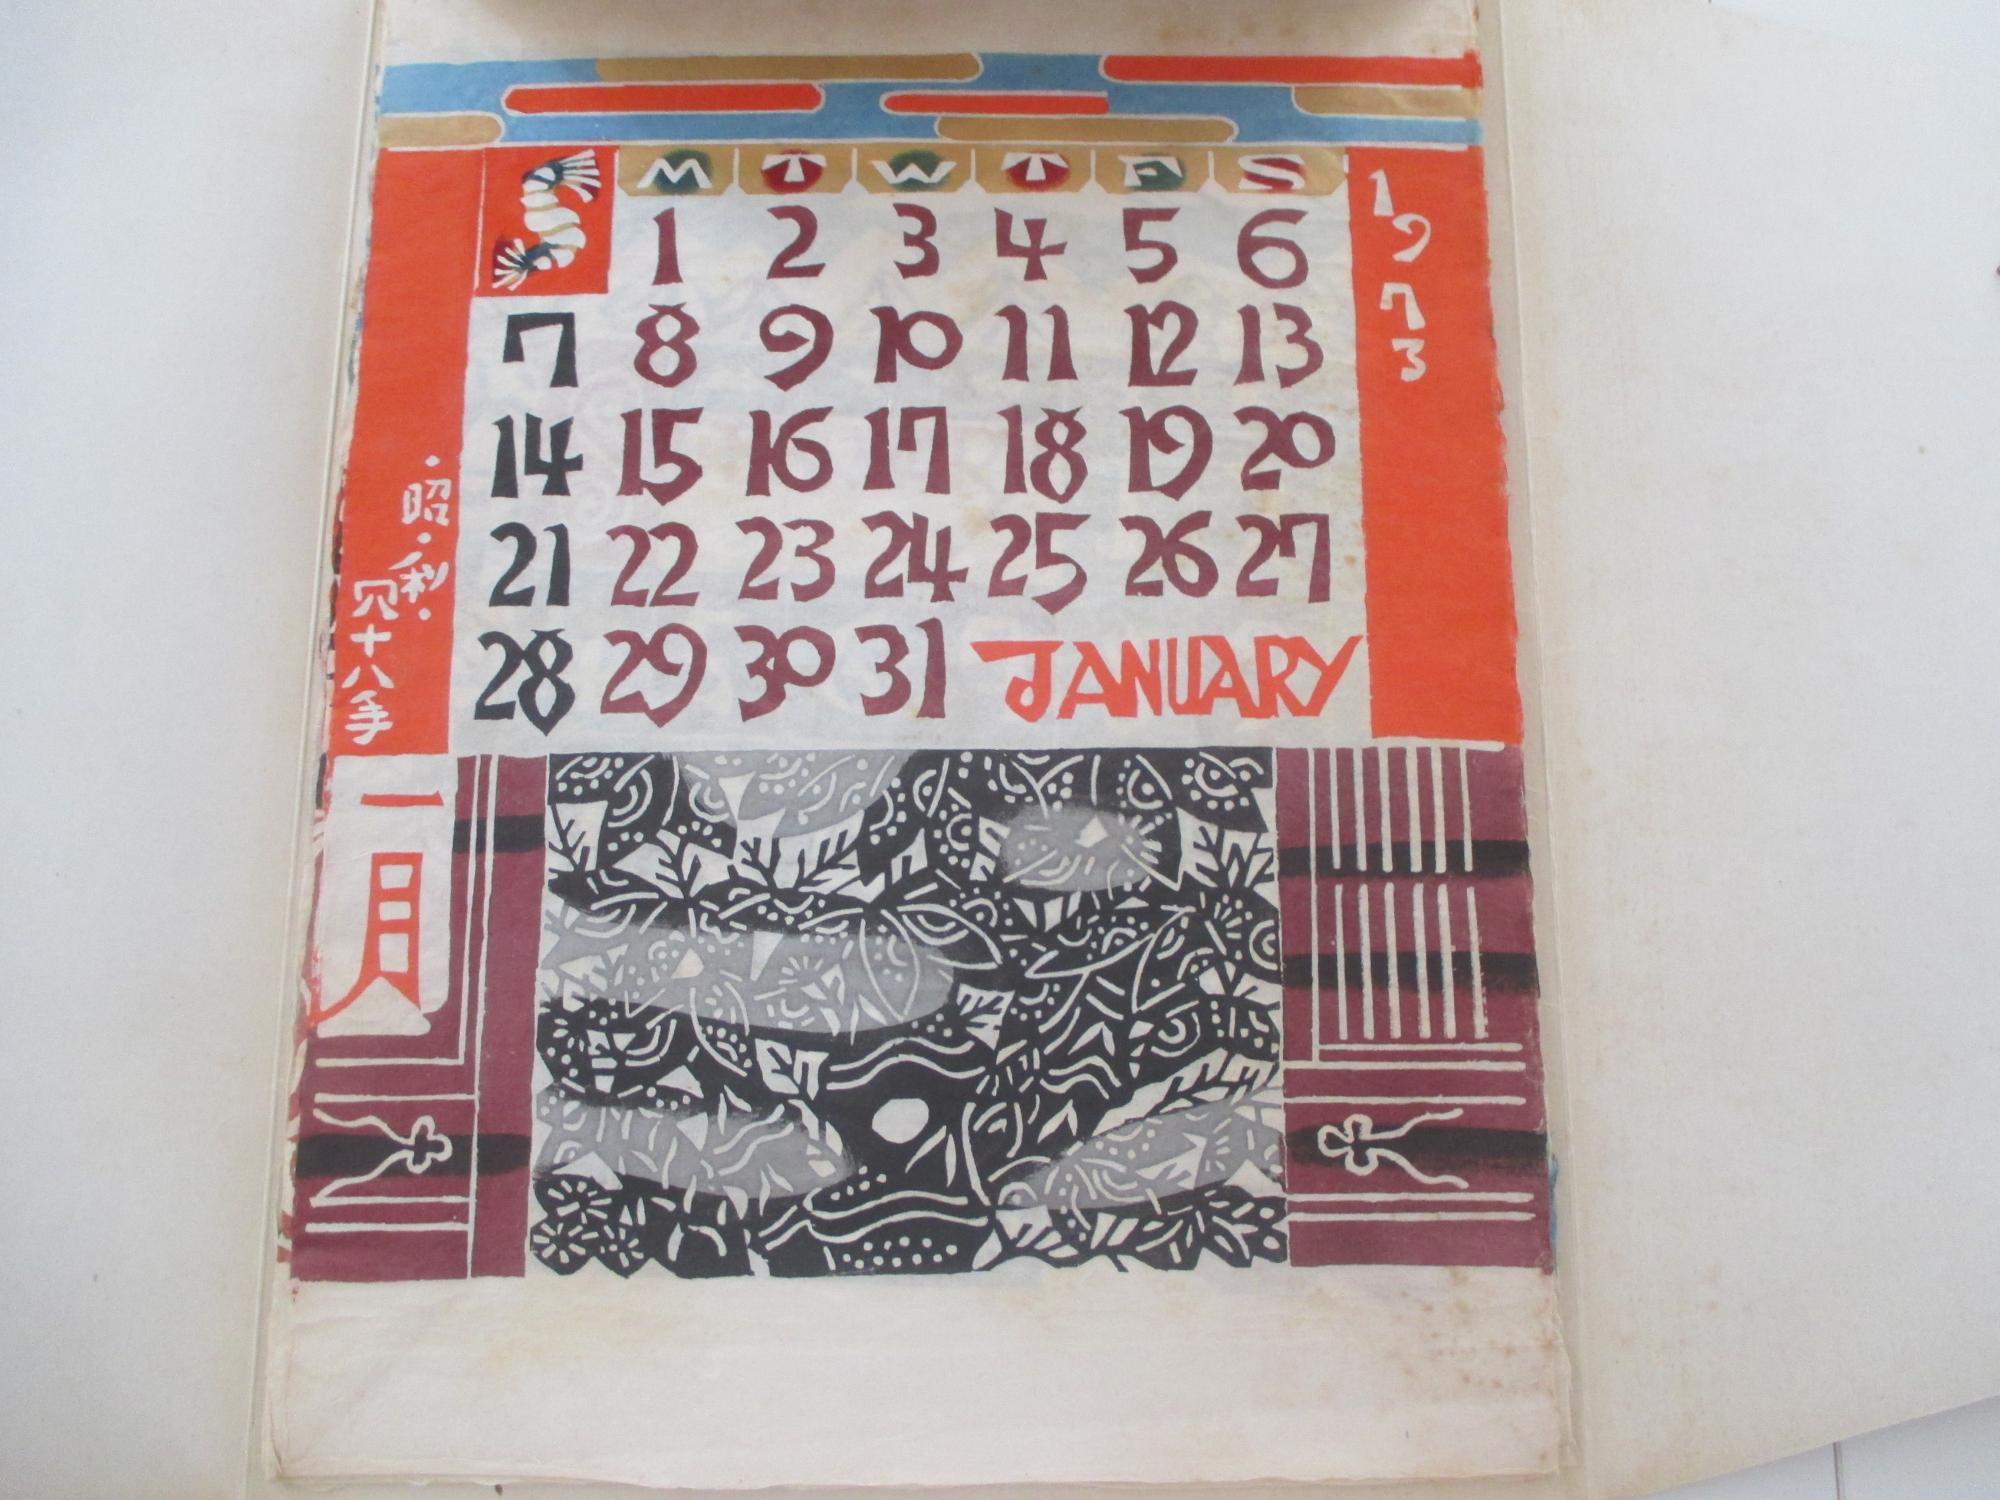 S M T W T F S
1 2 3 4 5 6
7 8 9 10 11 12 13
14 15 16 17 18 19 20
21 22 23 24 25 26 27
28 29 30 31 JANUARY
1973
・昭・和・
四十八年
一月